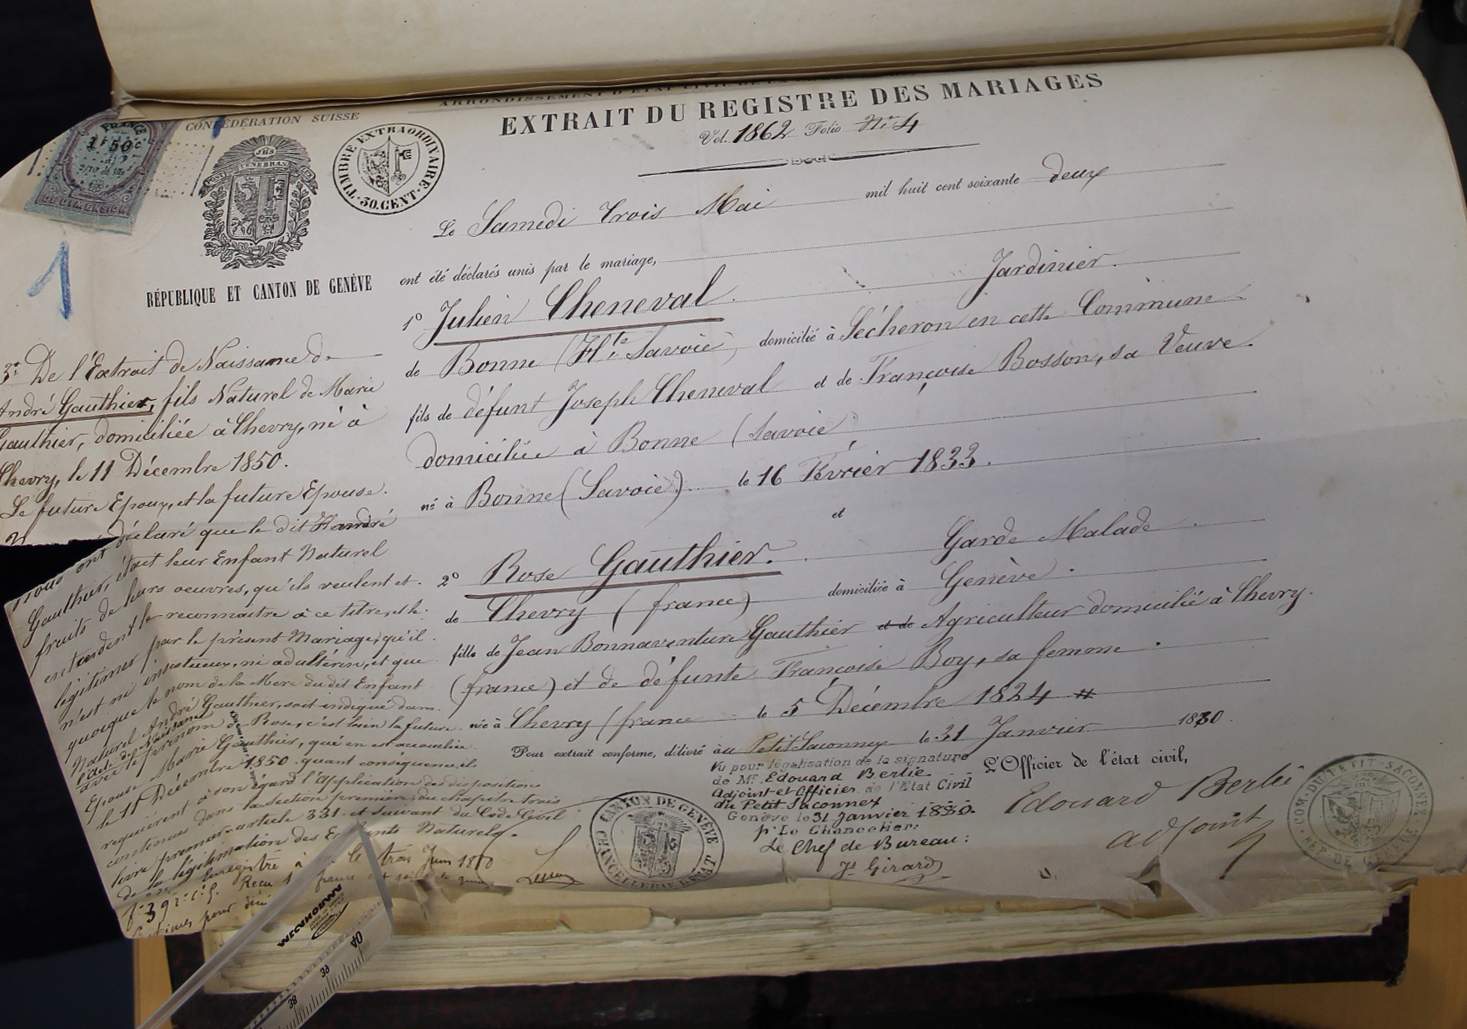 ARRONDISSEMENT D'ÉTAT CIVIL DE
EXTRAIT DU REGISTRE DES MARIAGES
Vol. 1862 Folio N° 4
FRANCE
1F50c
DIMENSION
CONFÉDERATION SUISSE
TENEBRAS
TIMBRE EXTRAORDINAIRE
50.CENT.
RÉPUBLIQUE ET CANTON DE GENÈVE
1
Le Samedi Trois Mai mil huit cent soixante deux
ont été déclarés unis par le mariage,
1° Julien Cheneval Jardinier.
de Bonne (Hte Savoie) domicilié à Sécheron en cette Commune
fils de défunt Joseph Cheneval et de Françoise Bosson, sa Veuve.
domiciliée à Bonne (Savoie)
né à Bonne (Savoie) le 16 Février 1833.
et
2° Rose Gauthier. Garde Malade
de Chevry (france) domiciliée à Genève.
fille de Jean Bonnaventure Gauthier et de Agriculteur domicilié à Chevry.
(france) et de défunte Françoise Boy, sa femme.
née à Chevry (france le 5 Décembre 1824 #
Pour extrait conforme, délivré au Petit Saconnex le 31 Janvier 1880.
L'Officier de l'état civil,
Edouard Berlie
adjoint
Vu pour légalisation de la signature
de Mr. Edouard Berlie
Adjoint et Officier de l'Etat Civil
du Petit Saconnex
Genève le 31 Janvier 1880.
pr. Le Chancelier:
Le Chef de Bureau:
Js Girard
CANTON DE GENÈVE
CHANCELLERIE D'ETAT
COM. DU PETIT-SACONNEX
REP. DE GENÈVE
3° De l'Extrait de Naissance de
André Gauthier, fils Naturel de Marie
Gauthier, domiciliée à Chevry, né à
Chevry, le 11 Décembre 1850.
Le future Epoux, et la future Epouse.
Nous ont déclaré que le dit André
Gauthier, était leur Enfant Naturel
fruits de leurs oeuvres, qu'ils veulent et
entendent le reconnaitre à ce titre, et le
légitimer par le présent Mariage, qu'il
n'est ni incestueux, ni adultérin, et que
quoique le nom de la Mère du dit Enfant
Naturel André Gauthier, soit indiqué dans
l'acte de Naissance
avec le prénom de Rose, c'est bien la future
Epouse Marie Gauthier, qui en est accouchée
le 11 Décembre 1850 quant conséquence, il
requièrent à son égard l'application des dispositions
contenues dans la section première, du chapitre trois
livre premier article 331 et suivant du Code Civil
de la légitimation des Enfants Naturels.
enregistré à le trois Juin 1880
f° 39 r° c. 5. Reçu
centimes pour
WESTCOTT